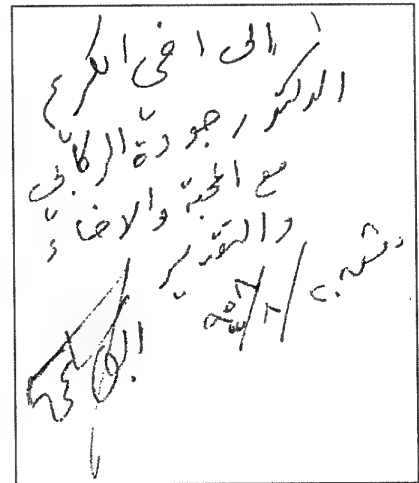 إلى اخي الكريم
الدكتور جودة الركابي
مع المحبة والاخاء
والتقدير
دمشق